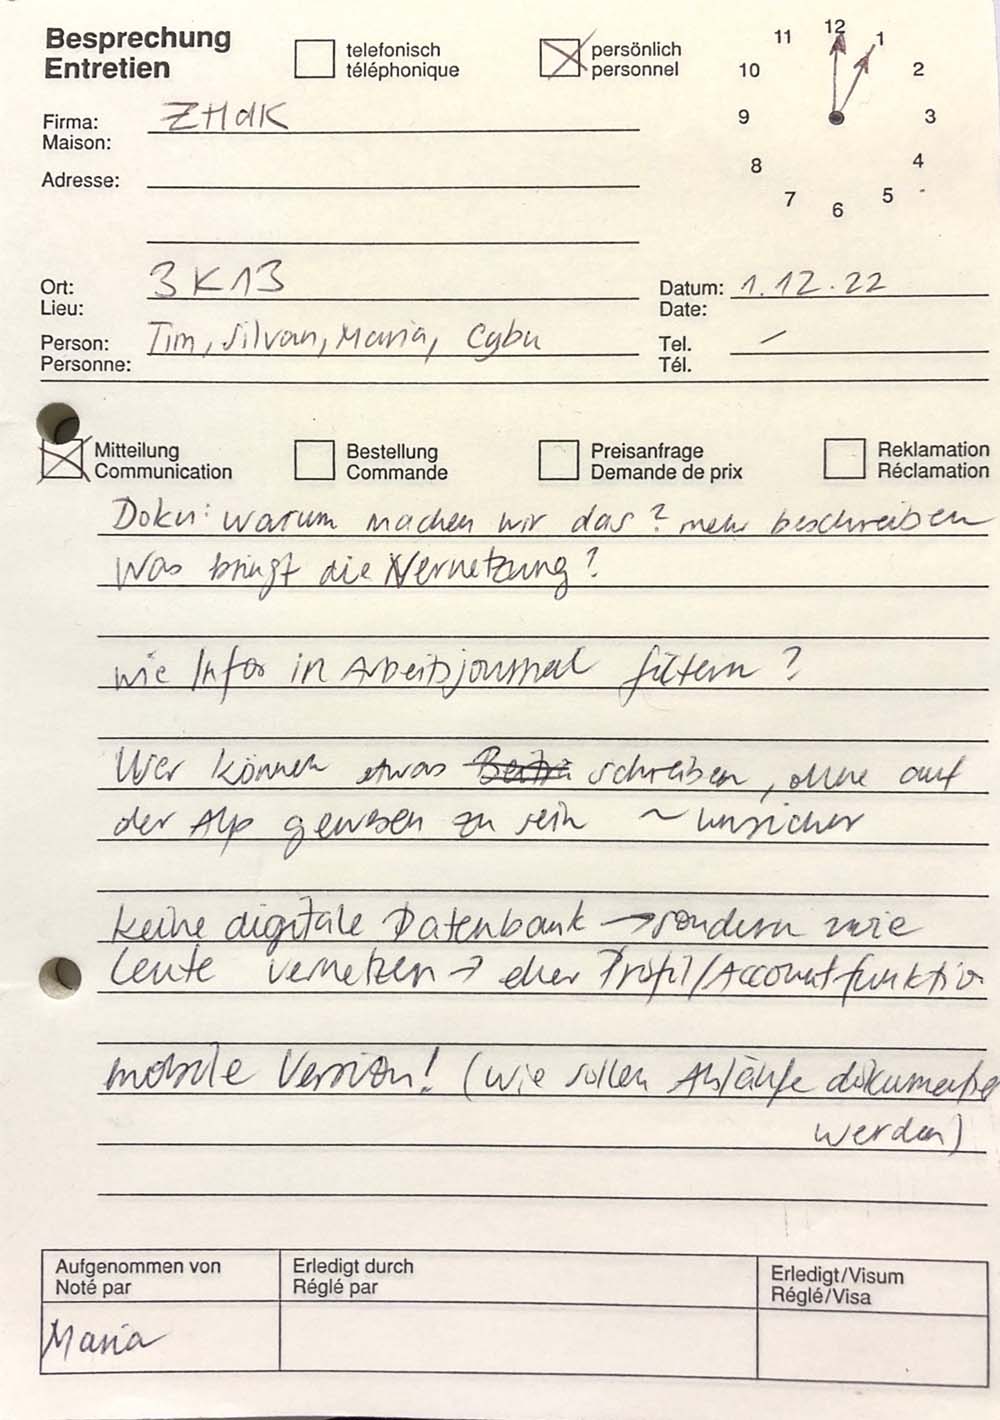 Besprechung
Entretien
telefonisch
téléphonique
persönlich
personnel
11 12 1
10 2
9 3
8 4
7 6 5
Firma: ZHdK
Maison:
Adresse:
Ort: 3K13
Lieu:
Datum: 1.12.22
Date:
Person: Tim, Silvan, Maria, Cybu
Personne:
Tel.
Tél.
Mitteilung
Communication
Bestellung
Commande
Preisanfrage
Demande de prix
Reklamation
Réclamation
Doku: warum machen wir das? mehr beschreiben
Was bringt die Vernetzung?
wie Infos in Arbeitsjournal filtern?
Wer können etwas schreiben, ohne auf
der Alp gewesen zu sein ~ unsicher
keine digitale Datenbank → sondern wie
Leute vernetzen → eher Profil/Accountfunktion
mobile Version! (wie sollen Abläufe
werden)
Aufgenommen von
Noté par
Erledigt durch
Réglé par
Erledigt/Visum
Réglé/Visa
Maria